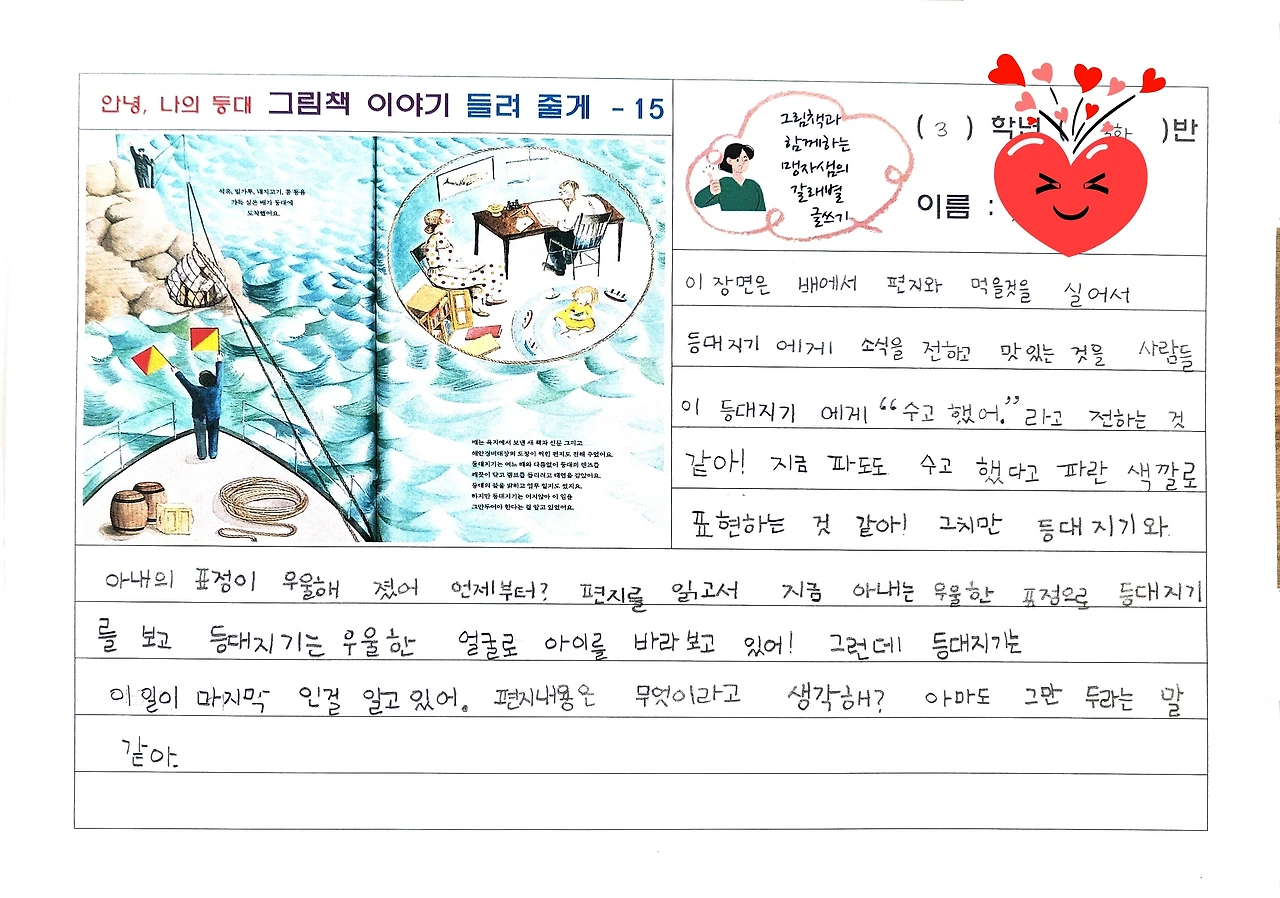 안녕, 나의 등대 그림책 이야기 들려 줄게 - 15
석유, 밀가루, 돼지고기, 콩 등을
가득 실은 배가 등대에
도착했어요.
배는 육지에서 보낸 새 책과 신문 그리고
해안경비대장의 도장이 찍힌 편지도 전해 주었어요.
등대지기는 어느 때와 다름없이 등대의 렌즈를
깨끗이 닦고 램프를 돌리려고 태엽을 감았어요.
등대의 빛을 밝히고 업무 일지도 썼지요.
하지만 등대지기는 머지않아 이 일을
그만두어야 한다는 걸 알고 있었어요.
그림책과
함께하는
맹자샘의
갈래별
글쓰기
( 3 ) 학년 ( )반
이름 :
이 장면은 배에서 편지와 먹을것을 실어서
등대지기 에게 소식을 전하고 맛있는 것을 사람들
이 등대지기 에게 “수고 했어.” 라고 전하는 것
같아! 지금 파도도 수고 했다고 파란 색깔로
표현하는 것 같아! 그치만 등대지기와
아내의 표정이 우울해 졌어 언제부터? 편지를 읽고서 지금 아내는 우울한 표정으로 등대지기
를 보고 등대지기는 우울한 얼굴로 아이를 바라보고 있어! 그런데 등대지기는
이 일이 마지막 인걸 알고 있어. 편지내용은 무엇이라고 생각해? 아마도 그만 두라는 말
같아.